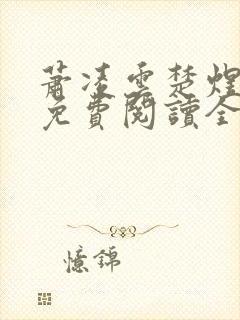 蕭凌雲楚煌
免費閱讀全
憶錦